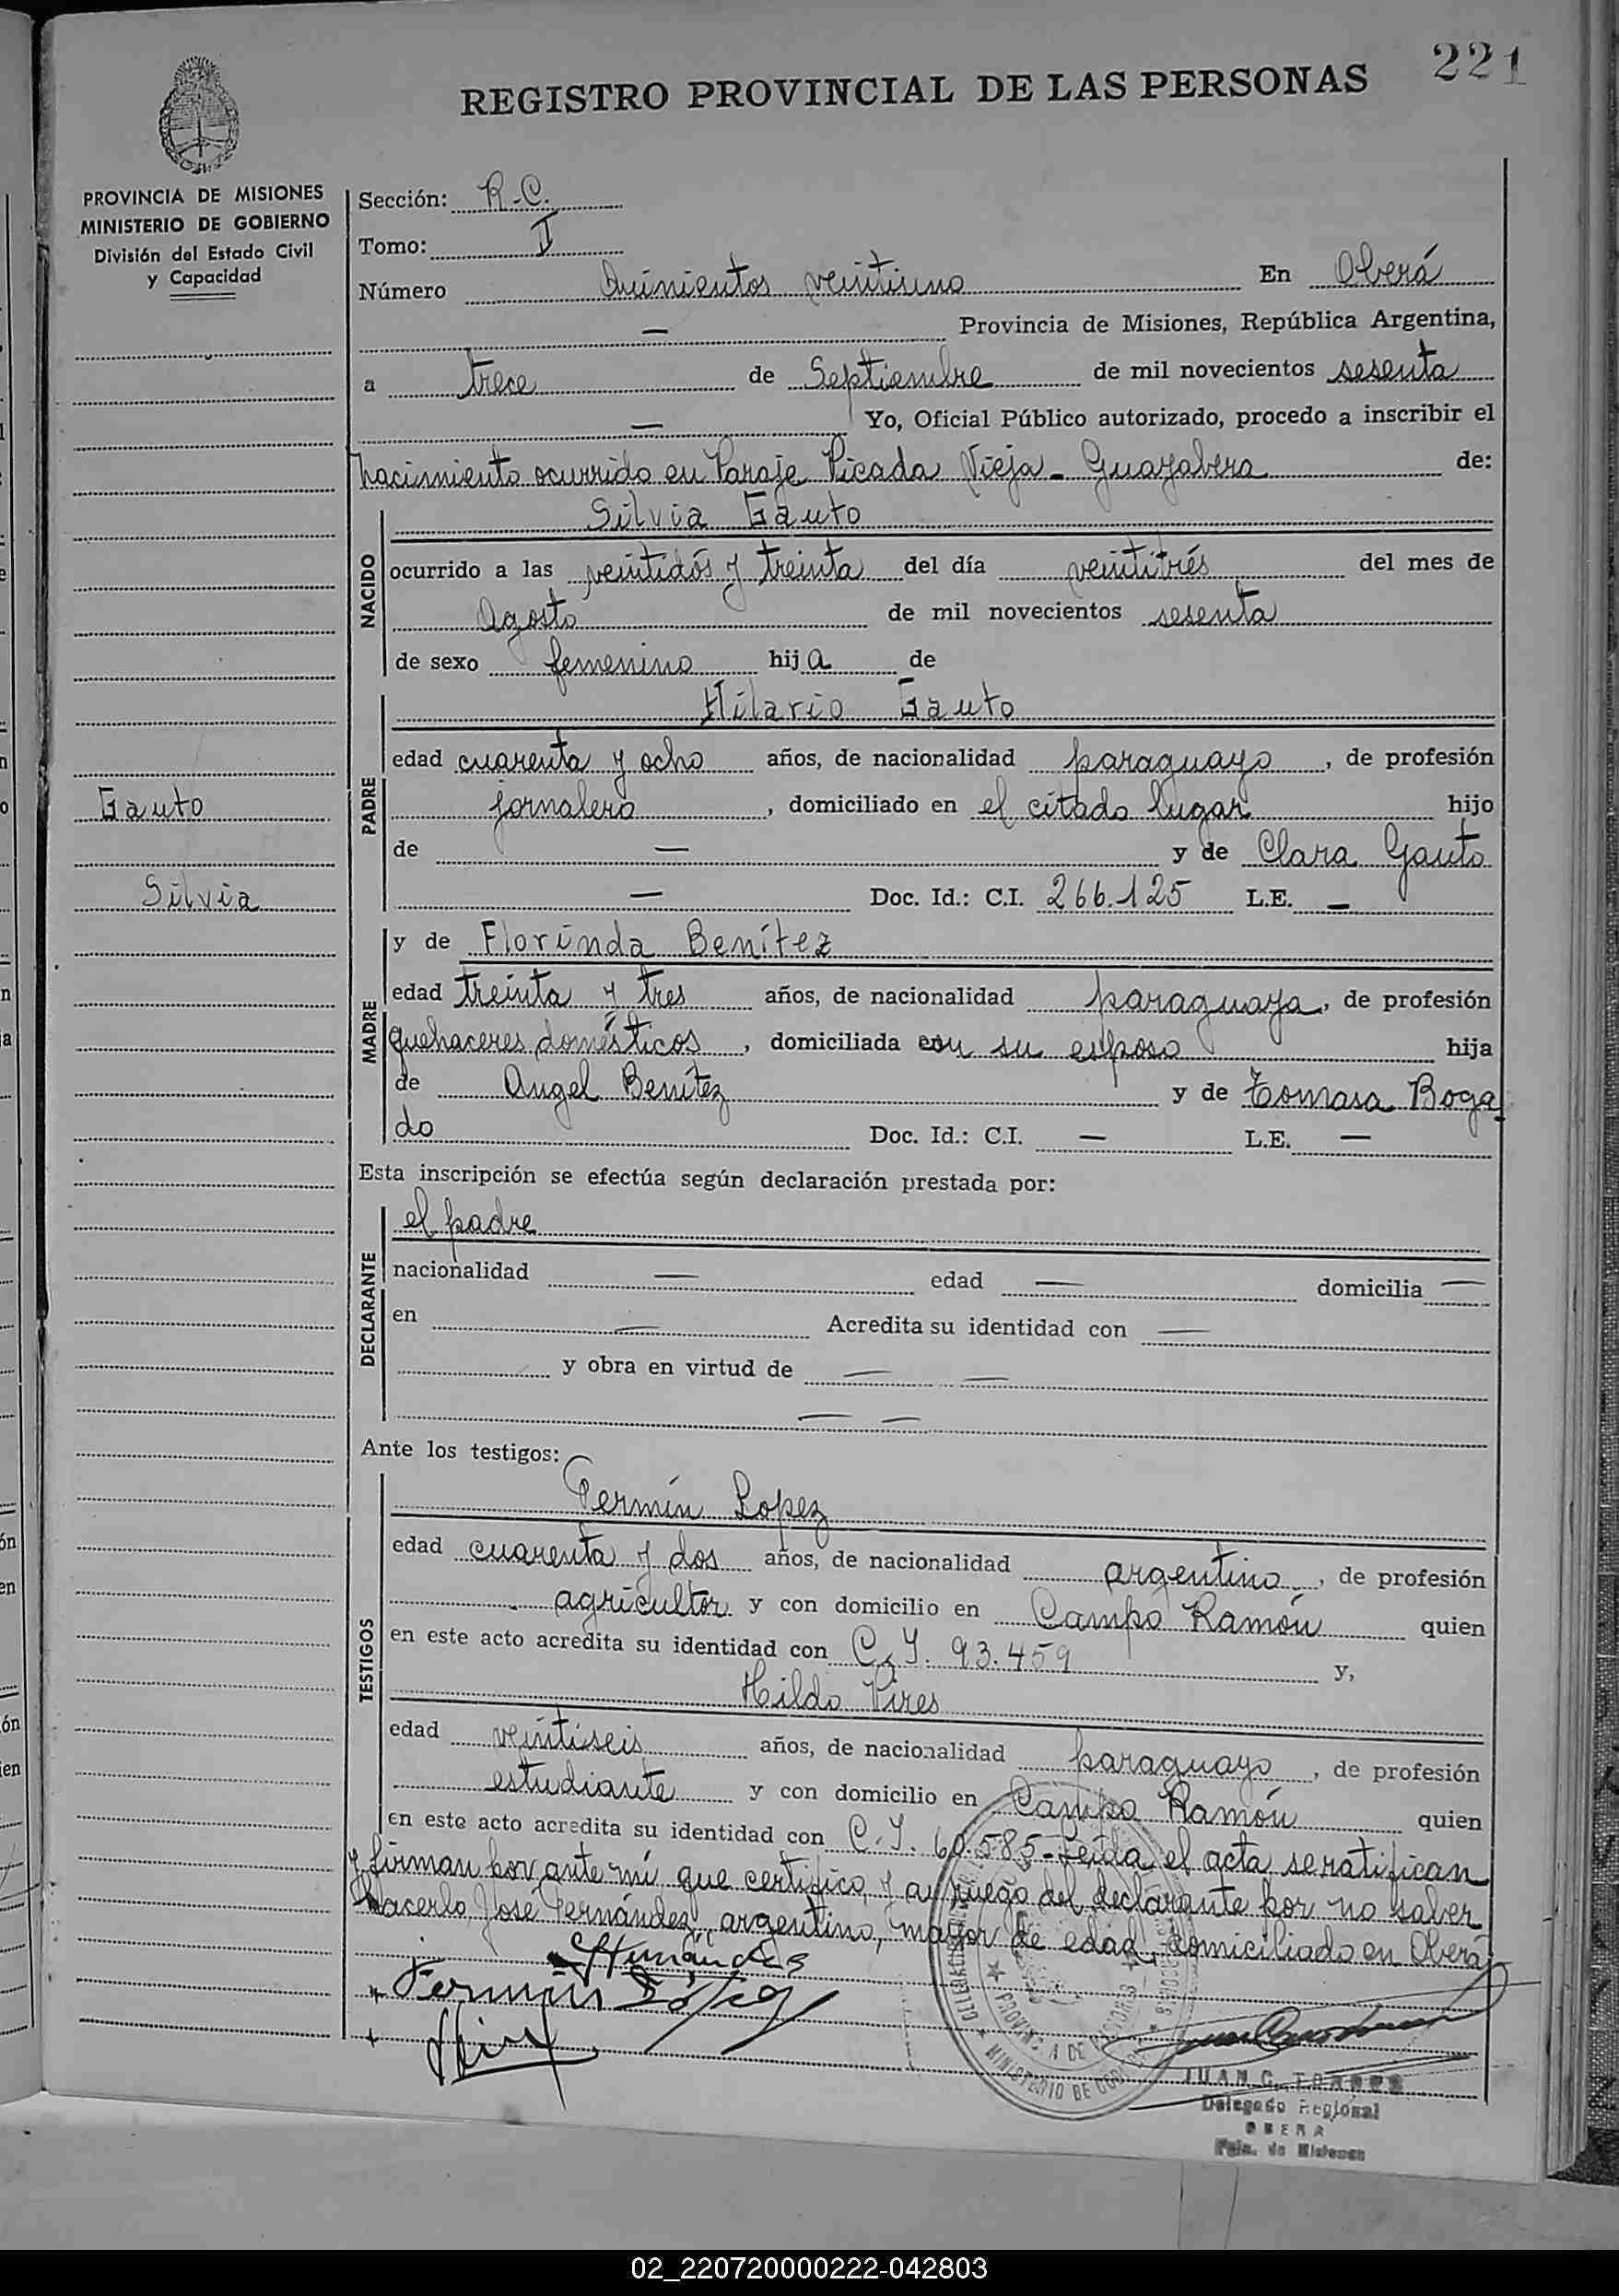 221
REGISTRO PROVINCIAL DE LAS PERSONAS
PROVINCIA DE MISIONES
MINISTERIO DE GOBIERNO
División del Estado Civil
y Capacidad
Sección: R.C.
Tomo: I
Número Quinientos veintiuno En Oberá
— Provincia de Misiones, República Argentina,
a trece de Septiembre de mil novecientos sesenta
— Yo, Oficial Público autorizado, procedo a inscribir el
nacimiento ocurrido en Paraje Picada Vieja - Guayabera de:
NACIDO
Silvia Gauto
ocurrido a las veintidós y treinta del día veintitrés del mes de
Agosto de mil novecientos sesenta
de sexo femenino hija de
PADRE
Hilario Gauto
edad cuarenta y ocho años, de nacionalidad paraguayo, de profesión
jornalero, domiciliado en el citado lugar hijo
de — y de Clara Gauto
— Doc. Id.: C.I. 266.125 L.E. —
Gauto
Silvia
MADRE
y de Florinda Benítez
edad treinta y tres años, de nacionalidad paraguaya, de profesión
quehaceres domésticos, domiciliada con su esposo hija
de Angel Benítez y de Tomasa Boga
do Doc. Id.: C.I. — L.E. —
Esta inscripción se efectúa según declaración prestada por:
DECLARANTE
el padre
nacionalidad — edad — domicilia —
en — Acredita su identidad con —
y obra en virtud de — —
— —
Ante los testigos:
TESTIGOS
Fermín Lopez
edad cuarenta y dos años, de nacionalidad argentino, de profesión
agricultor y con domicilio en Campo Ramón quien
en este acto acredita su identidad con C.I. 93.459 y,
Hildo Pires
edad veintiseis años, de nacionalidad paraguayo, de profesión
estudiante y con domicilio en Campo Ramón quien
en este acto acredita su identidad con C.I. 60.585 - Leída el acta se ratifican
y firman por ante mí que certifico, y a ruego del declarante por no saber
hacerlo José Fernández, argentino, mayor de edad, domiciliado en Oberá
Fermin López
MINISTERIO DE GOBIERNO
PROVINCIA DE MISIONES
JUAN C. TORRES
Delegado Regional
OBERA
Pcia. de Misiones
02_220720000222-042803